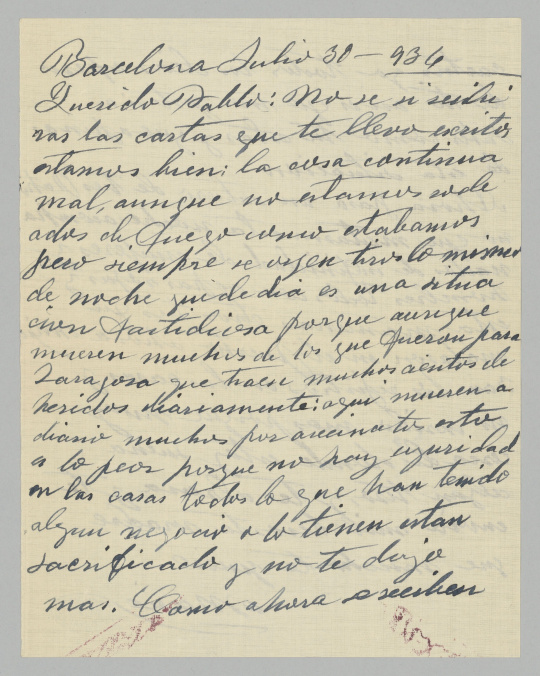 Barcelona Julio 30 - 936
Querido Pablo: No se si recibi
ras las cartas que te llevo escritos
estamos bien; la cosa continua
mal, aunque no estamos rode
ados de fuego como estabamos
pero siempre se oyen tiros lo mismo
de noche qui de dia es una situa
cion fastidiosa porque aunque
mueren muchos de los que fueron para
Zaragosa que traen muchos cientos de
heridos diariamente: aqui mueren a
diario muchos por asecinatos esto
es lo peor porque no hay seguridad
en las casas todos lo que han tenido
algun negocio o lo tienen estan
sacrificado y no te digo
mas. Como ahora escriben